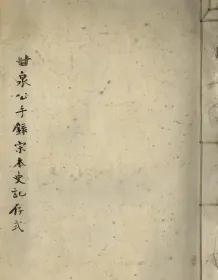 甘泉公手錄宋本史記存弍